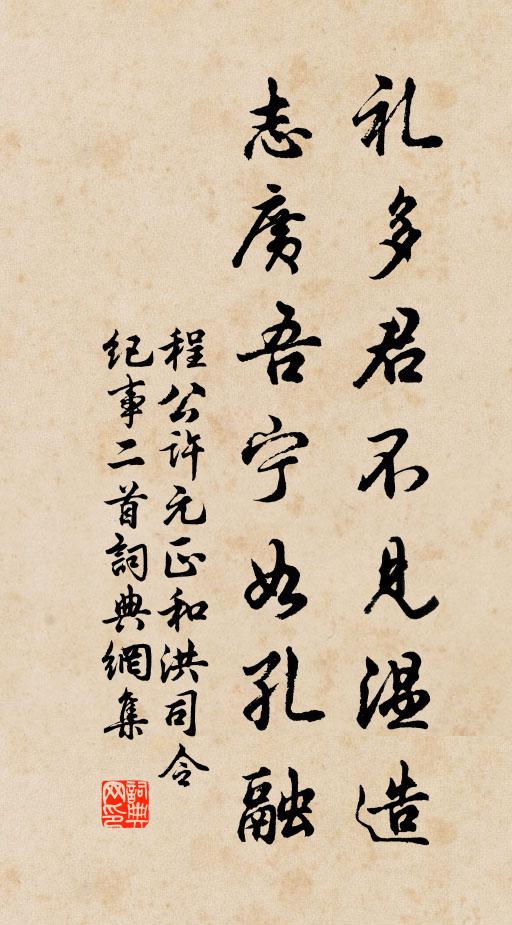 礼多君不见温造
志广吾宁如孔融
程公许元正和洪司令
纪事二首詞典網集
詞典网印